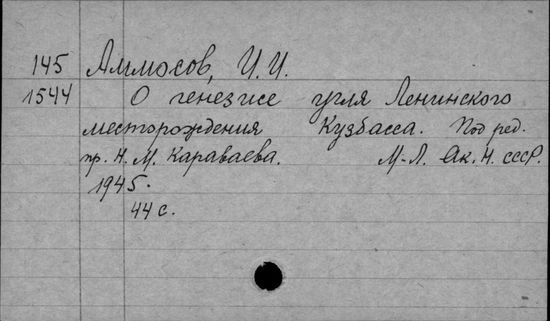 145 Аммосов, И. И.
1544 О генезисе угля Ленинского
месторождения Кузбасса. Под ред.
пр. Н. М. Караваева. М-Л. Ак. Н. СССР.
1945.
44 с.